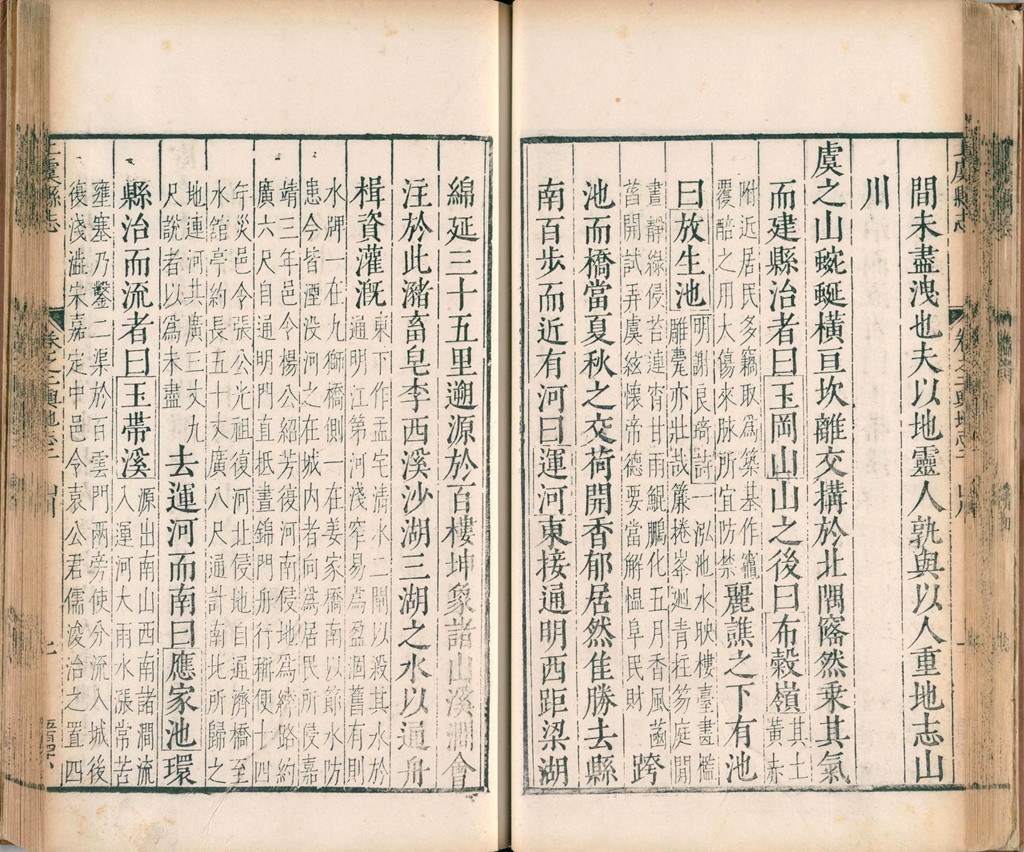 間未盡洩也夫以地靈人孰與以人重地志山
川
虞之山蜿蜒橫亘坎離交搆於北隅窿然乗其氣
而建縣治者曰玉岡山山之後曰布穀嶺其土
黃赤
附近居民多竊取爲築基作竈
覆醅之用大傷來脉所宜防禁麗譙之下有池
曰放生池明謝良琦詩一泓池水映樓臺畫檻
雕甍亦壯哉簾捲峯迴青在笏庭閒
晝靜綠侵苔連宵甘雨鯤鵬化五月香風菡
萏開試弄虞絃懷帝德要當解慍阜民財跨
池而橋當夏秋之交荷開香郁居然佳勝去縣
南百步而近有河曰運河東接通明西距梁湖
綿延三十五里遡源於百樓坤象諸山溪澗會
注於此瀦畜皂李西溪沙湖三湖之水以通舟
楫資灌漑東下作孟宅清水二閘以殺其水於
通明江第河淺窄易爲盈涸舊有則
水牌一在九獅橋側一在姜家橋南以節水防
患今皆湮没河之在城内者向爲居民所侵嘉
靖三年邑令楊公紹芳復河南侵地爲縴路約
廣六尺自通明門直抵晝錦門舟行稱便十四
年災邑令張公光祖復河北侵地自逼濟橋至
水館亭約長五十丈廣八尺通計南北所歸之
地連河共廣三丈九
尺說者以爲未盡去運河而南曰應家池環
縣治而流者曰玉帶溪源出南山西南諸澗流
入運河大雨水漲常苦
壅塞乃鑿二渠於百雲門兩旁使分流入城後
復淺澁宋嘉定中邑令袁公君儒浚治之置四
上虞縣志 卷之二輿地志二 七